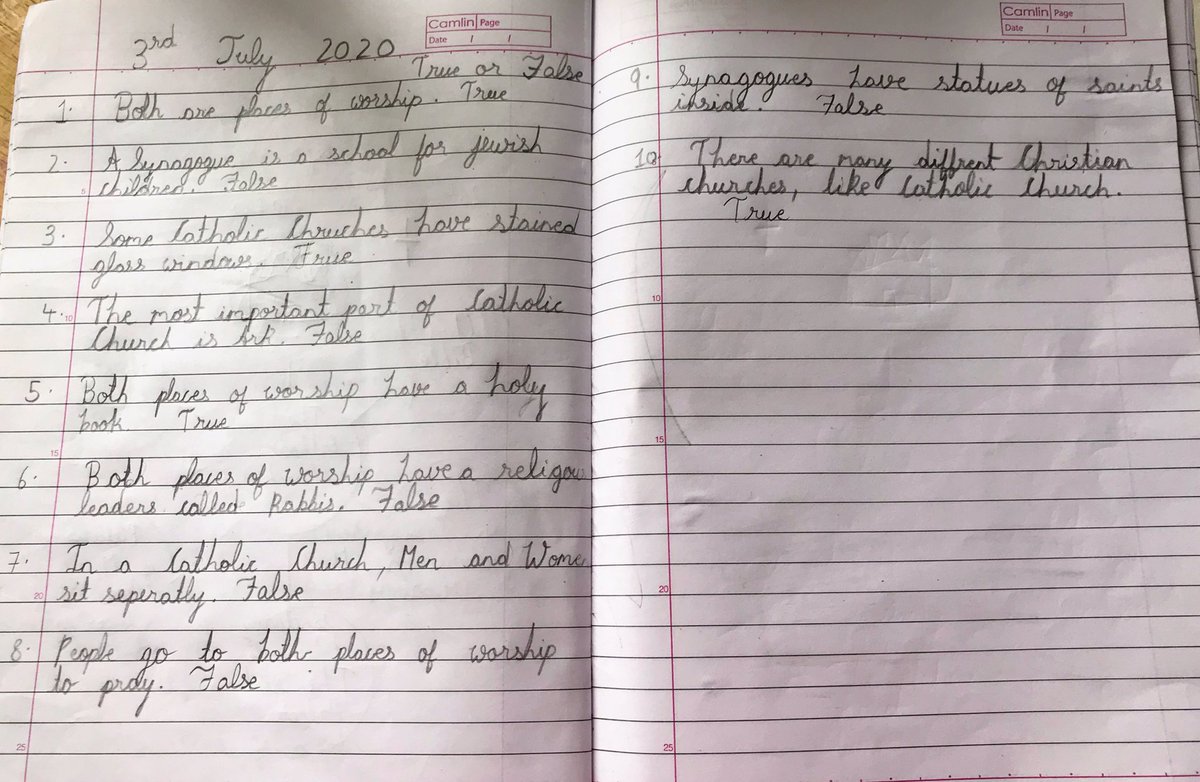 Camlin Page
Date / /
3rd July 2020
True or False
1. Both are places of worship. True
2. A Synagogue is a school for jewish
children. False
3. Some Catholic Chruches have stained
glass windows. True
4. The most important part of Catholic
Church is Ark. False
5. Both places of worship have a holy
book. True
6. Both places of worship have a religous
leaders called Rabbis. False
7. In a Catholic Church, Men and Women
sit seperatly. False
8. People go to both places of worship
to pray. False
5
10
15
20
25
Camlin Page
Date / /
9. Synagogues have statues of saints
inside. False
10. There are many diffrent Christian
churches, like Catholic Church.
True
10
15
20
25